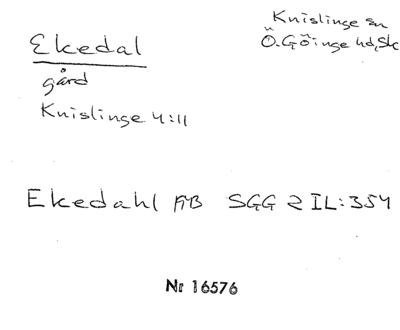 Ekedal
Knislinge sn
Ö. Göinge hd, Sk
gård
Knislinge 4:11
Ekedahl AB SGG 2 IL:354
Nr 16576